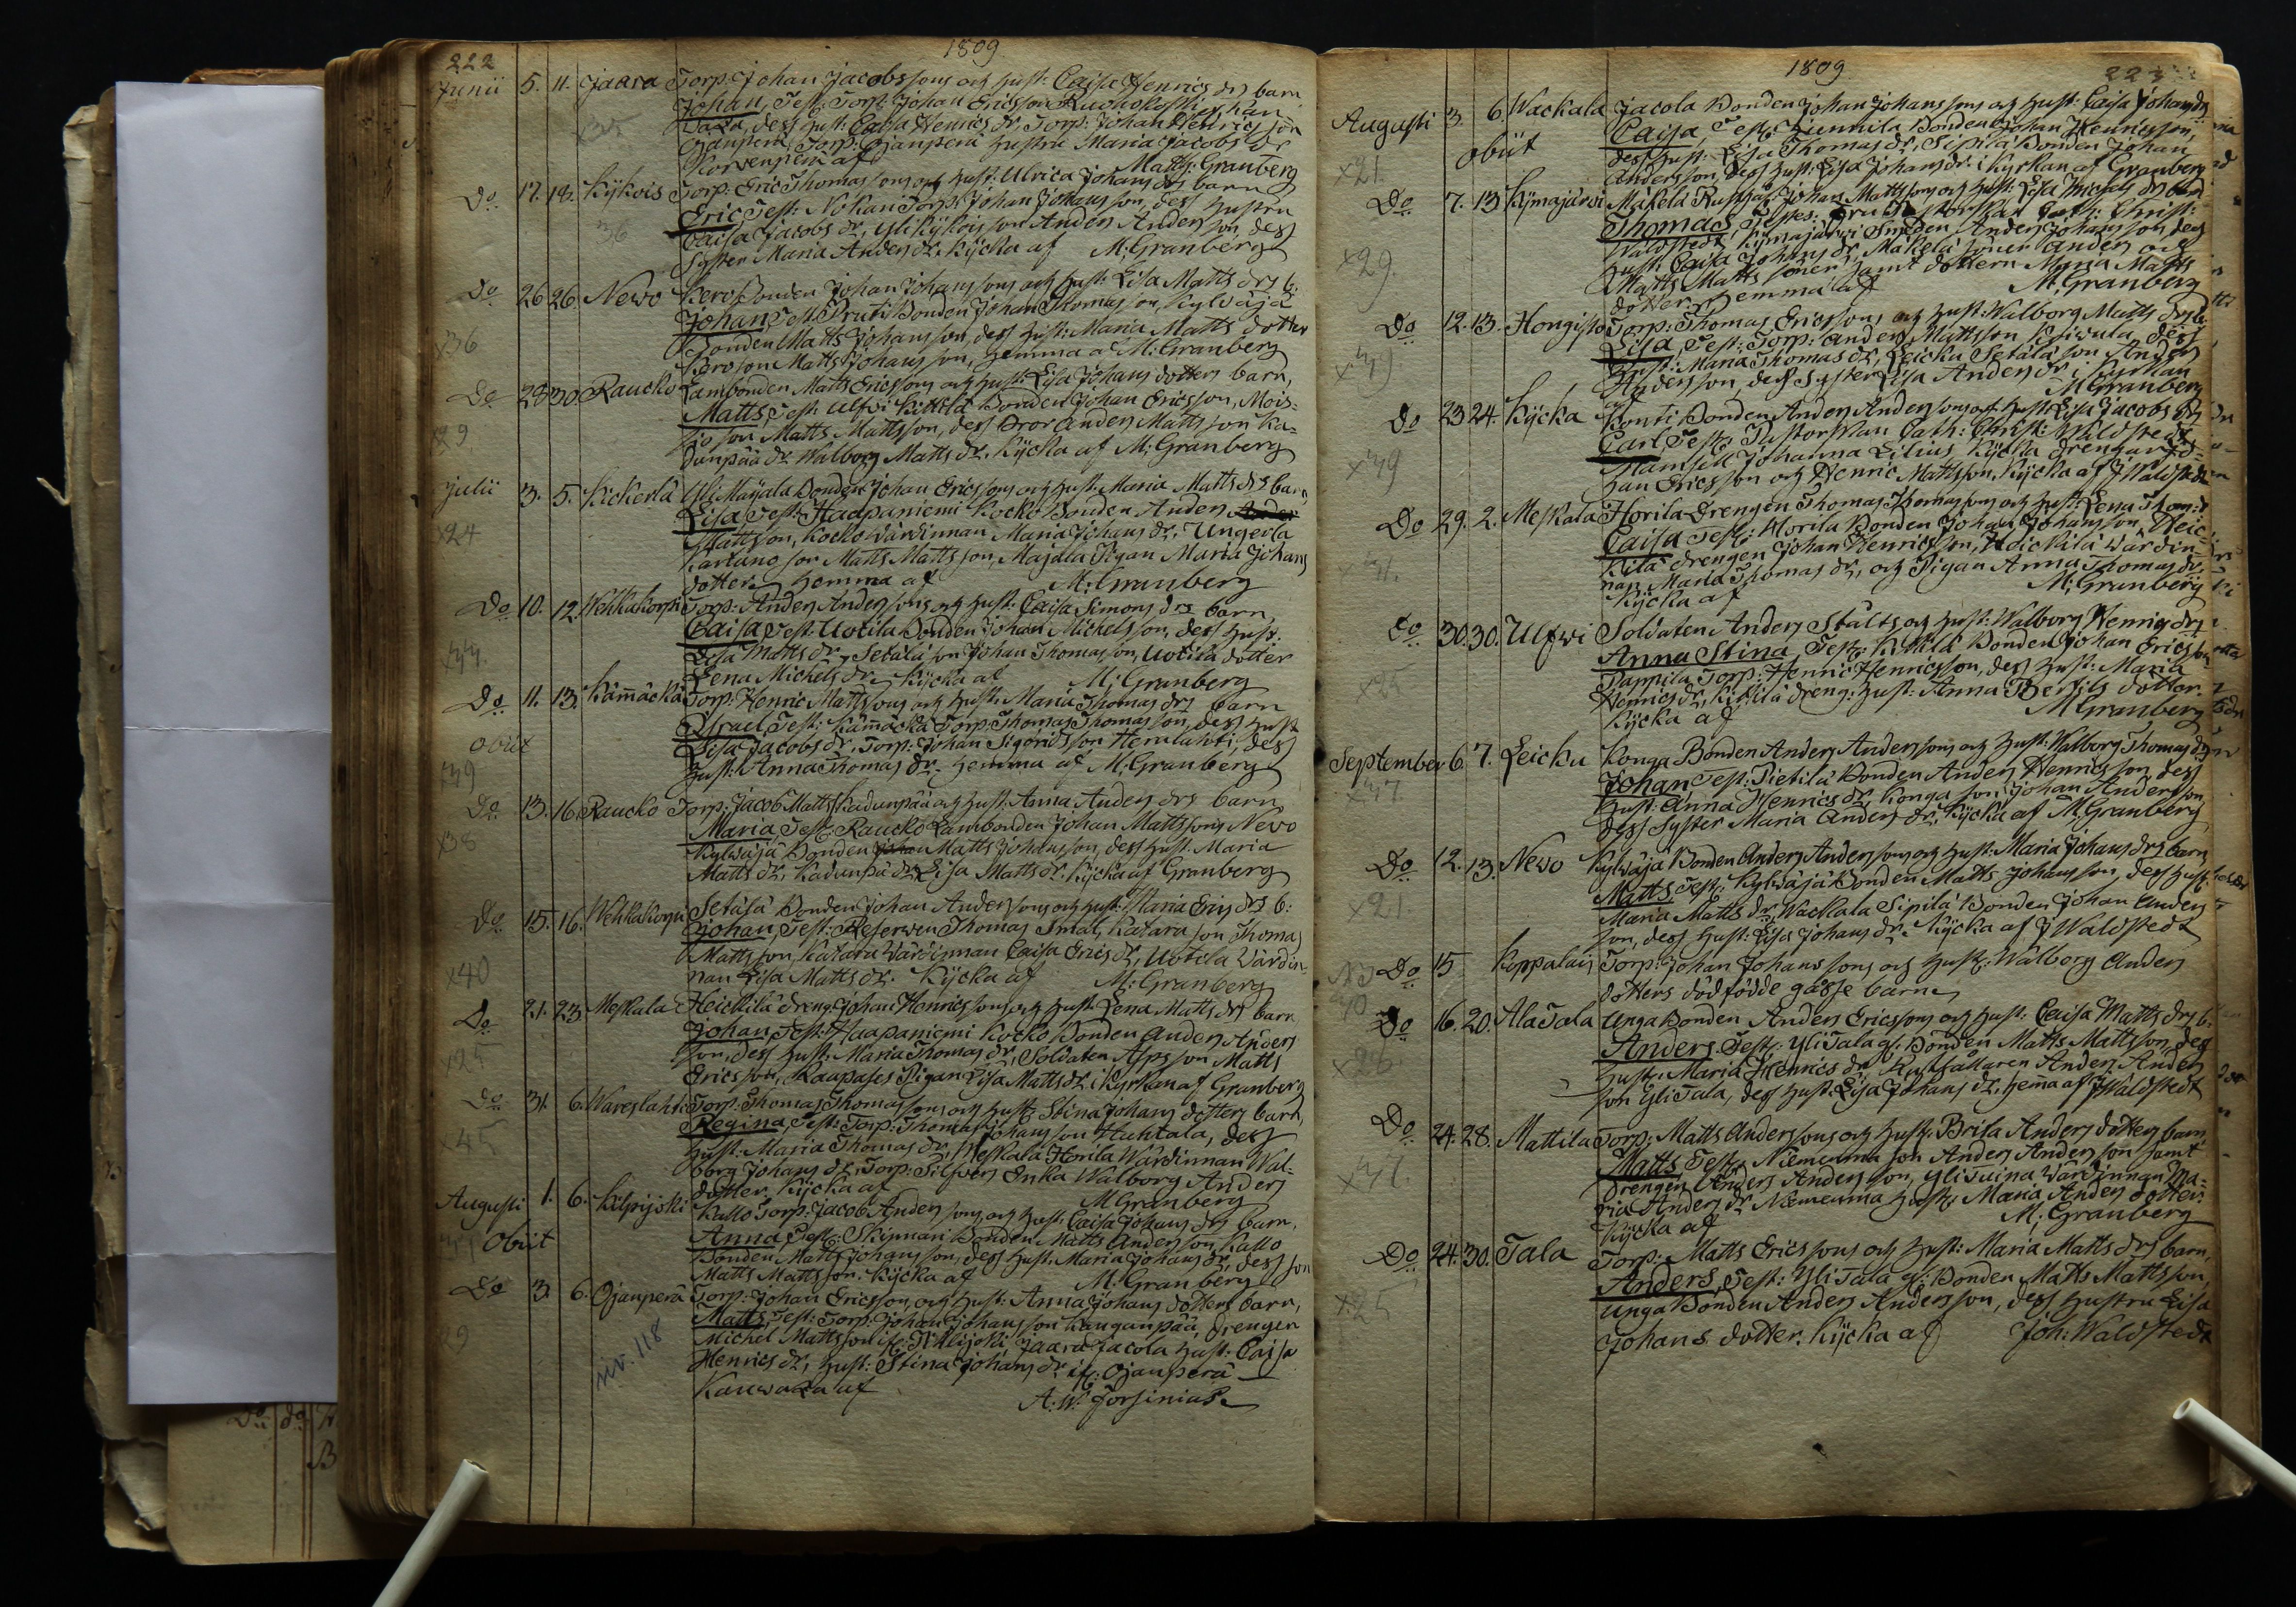 222
1809
Junii 5. 11. Jaara Torp: Johan Jacobssons och hust: Caisa Henrics drs barn
Johan, Test: Torp: Johan Ericsson
dess hust: Caisa Henrics dr, Torp: Johan Henrics son
Ojanperä, Torp: Ojanperä hustru Maria Jacobs dr
Korvenperä af Matths: Granberg
Do 17. 18. Kykois Torp: Eric Thomassons och hust: Ulrica Johans drs barn
Eric Test: Nokari Torp: Johan Johansson, dess hustru
Caisa Jacobs dr, Yli Kykois son Anders Andersson, dess
Syster Maria Anders dr. Kyrka af M: Granberg
Do 26 26. Newo Kero Bonden Johan Johanssons och hust: Lisa Matts drs b.
Johan, Test: Pruti Bonden Johan Thomasson, Kylväjä
Bonden Matts Johansson, dess hust: Maria Matts dotter
Kero son Matts Johansson, hemma af M: Granberg
Do 29 30. Raucko Lambonden Matts Ericssons och hust: Lisa Johans dotters barn,
Matts, Test: Ulfvi Kittilä Bonden Johan Ericsson, Mois=
jo son Matts Mattsson, dess Bror Anders Mattsson Ka=
dunpää dr. Walborg Matts dr. Kyrka af M: Granberg
Julii 3. 5. Kickerlä Yli Maijala Bonden Johan Ericssons och hust: Maria Matts drs barn
Lisa Test: Haapaniemi Kocko Bonden Anders
Mattsson, Kocko Wärdinnan Maria Johans dr. Ungerla
Kartano son Matts Mattsson, Majala Pigan Maria Johans
dotter, hemma af M: Granberg
Do 10. 12. Wehkakorpi Torp: Anders Anderssons och hust: Caisa Simons drs barn,
Caisa, Test: Uotila Bonden Johan Michelsson, dess hust.
Lisa Matts dr, Setälä son Johan Thomasson, Uotila dotter
Lena Michels dr, Kyrka af M: Granberg
Do 11. 13. Kämäckä Torp: Henric Mattssons och hust: Maria Thomas drs barn
obiit Israel, Test: Kämäckä Torp: Thomas Thomasson, dess hust
Lisa Jacobs dr, Torp: Johan Sigfridsson Heralahti, dess
hust: Anna Thomas dr. hemma af M: Granberg
Do 13. 16. Raucko Torp: Jacob Matts Kadunpää och hust: Anna Anders drs barn,
Maria, Test: Raucko Lambonden Johan Mattssons Newo
Kylwäjä Bonden Matts Johansson, dess hust: Maria
Matts dr, Kadunpää dr. Lisa Matts dr. Kyrka af Granberg
Do 15. 16. Wehkakorpi Setälä Bonden Johan Anderssons och hust: Maria Erics drs b:
Johan, Test: Reserven Thomas Smal, Katara son Thomas
Mattsson, Katara Wärdinnan Caisa Erics dr, Uotila Wärdin=
nan Lisa Matts dr. Kyrka af M: Granberg
Do 21. 23. Meskala Heickilä dreng: Johan Henricssons och hust: Lena Matts drs barn
Johan, Test: Haapaniemi Kocko Bonden Anders Anders
son, dess hust: Maria Thomas dr, Soldaten Asps son Matts
Ericsson, Raapases Pigan Lisa Matts dr. i Kyrkan af Granberg
Do 31. 6. Wareslahti Torp: Thomas Thomassons och hust: Stina Johans dotters barn,
Regina, Test: Torp: Thomas Johansson Huhtala, dess
hust: Maria Thomas dr, Meskala Horila Wärdinnan Wal=
borg Johans dr, Torp: Silfvers Enka Walborg Anders
dotter Kyrka af M: Granberg
Augusti 1. 6. Kilpijoki Kallo Torp: Jacob Anderssons och hust: Caisa Johans drs barn,
Obiit Anna, Test: Skinnari Bonden Matts Andersson, Kallo
Bonden Matts Johansson, dess hust: Maria Johans dr, dess son
Matts Mattsson. Kyrka af M: Granberg
Do 3. 6. Ojanperä Torp: Johan Ericsson, och hust: Anna Johans dotters barn,
Matts, Test: Torp: Johan Johansson Kauganpää, drengen
Michel Mattsson, Jaara Jacola hust: Caisa
Henrics dr, hust: Stina Johans dr, Ojanperä
Kauwaza af A: W: Forsinius.
niv. 118
1809
223
Augusti 3. 6. Wackala Jacola Bonden Johan Johanssons och hust: Caisa Johans drs
obiit Caisa, Test: Junnila Bonden Johan Henricsson,
dess hust: Lisa Thomas dr, Sipilä Bonden Johan
Andersson, dess hust: Lisa Johans dr. i Kyrkan af Granberg
Do 7. 13. Kymajärvi Mäkelä Johan Mattssons och hust: Lisa Michels drs barn
Thomas, Testes: Cath: Christ:
Waldstedt, Kymajärvi Smeden Anders Johansson dess
hust: Caisa Johans dr, Mäkelä söner Anders och
Matts Matts söner samt dottern Maria Matts
dotter hemma af M: Granberg
Do 12. 13. Hongisto Torp: Thomas Ericssons och hust: Walborg Matts drs b.
Lisa, Test: Torp: Anders Mattsson, dess
hust: Maria Thomas dr, Leicku Setälä son Anders
Andersson, dess Syster Lisa Anders dr i Kyrkan
af M: Granberg
Do 23 24. Kycka Konti Bonden Anders Anderssons och hust: Lisa Jacobs drs
Carl Test: Pastorskan Cath: Christ: Waldstedt
Mamsell Johanna Lilius, Kycka drengar Jo=
han Ericsson och Henric Mattsson, Kyrka af J Waldstedt
Do 29. 2. Meskala Horila Drengen Thomas Thomassons och hust: Lena Thom:
Caisa Test: Horila Bonden Johan Johansson, Heic=
kilä drengen Johan Henricsson, Heickilä Wärdin=
nan Maria Thomas dr, och Pigan Anna Thomas dr.
Kyrka af M: Granberg
Do 30. 30. Ulfwi Soldaten Anders Stålts och hust: Walborg Henrics drs
Anna Stina, Test: Kittilä Bonden Johan Ericsson
Pappila Torp: Henric Henricsson, dess hust: Maria
Henrics dr, Kittilä dreng: hust: Anna Bertils dotter.
Kyrka af M: Granberg
September 6. 7. Leicku Konga Bonden Anders Anderssons och hust: Walborg Thomas drs
Johan, Test: Pietilä Bonden Anders Henricsson, dess
hust: Anna Henrics dr, Konga son Johan Andersson
dess Syster Maria Anders dr. Kyrka af M: Granberg
Do 12. 13. Newo Kylwäjä Bonden Anders Anderssons och hust: Maria Johans drs barn
Matts, Test: Kylwäjä Bonden Matts Johansson, dess hust:
Maria Matts dr, Wackala Sipilä Bonden Johan Anders
son, dess hust: Lisa Johans dr. Kyrka af J Waldstedt
Do 15 Koppalais Torp: Johan Johanssons och hust: Walborg Anders
dotters dödfödde gosse barn
Do 16. 20. Ala Tala Unga Bonden Anders Ericssons och hust: Caisa Matts drs b.
Anders. Test: Yli Tala g: Bonden Matts Mattsson, dess
hust: Maria Henrics dr, Anders Anders
son Yli Tala, dess hust: Lisa Johans dr, hemma af J Waldstedt
Do 24. 28. Mattila Torp: Matts Anderssons och hust: Brita Anders dotters barn
Matts Test: Niemenmaa son Anders Andersson samt
drengen Anders Andersson, Wärdinnan Ma=
ria Anders dr Niemenmaa hust: Maria Anders dotter.
Kyrka af M: Granberg
Do 24. 30. Tala Torp: Matts Ericssons och hust: Maria Matts drs barn,
Anders, Test: Yli Tala g: Bonden Matts Mattsson,
unga Bonden Anders Andersson, dess hustru Lisa
Johans dotter. Kyrka af Joh: Waldstedt